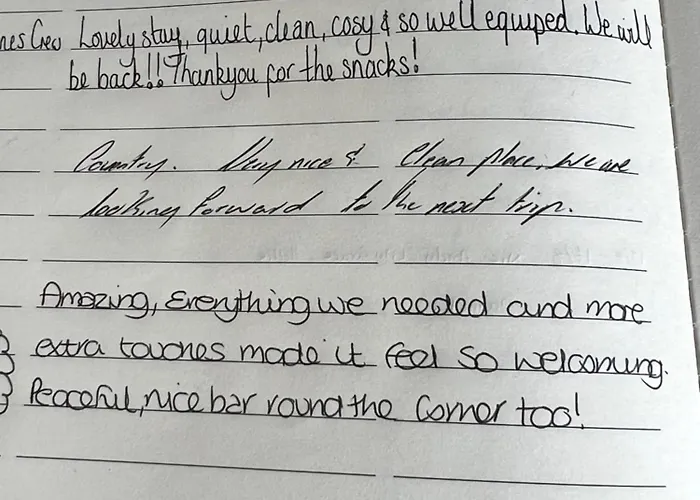 Lovely stay, quiet, clean, cosy & so well equiped. We will
be back!! Thankyou for the snacks!
Country. Very nice & Clean place. We are
looking forward to the next trip.
Amazing, Everything we needed and more
extra touches made it feel so welcoming.
Peaceful, nice bar round the corner too!